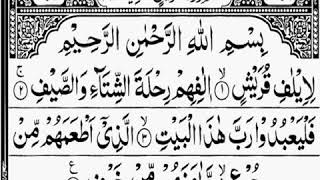 بِسْمِ اللّٰهِ الرَّحْمٰنِ الرَّحِيْمِ
لِاِيْلٰفِ قُرَيْشٍ ۙ﴿۱﴾ اٖلٰفِهِمْ رِحْلَةَ الشِّتَآءِ وَالصَّيْفِ ۚ﴿۲﴾
فَلْيَعْبُدُوْا رَبَّ هٰذَا الْبَيْتِ ۙ﴿۳﴾ الَّذِيْٓ اَطْعَمَهُمْ مِّنْ